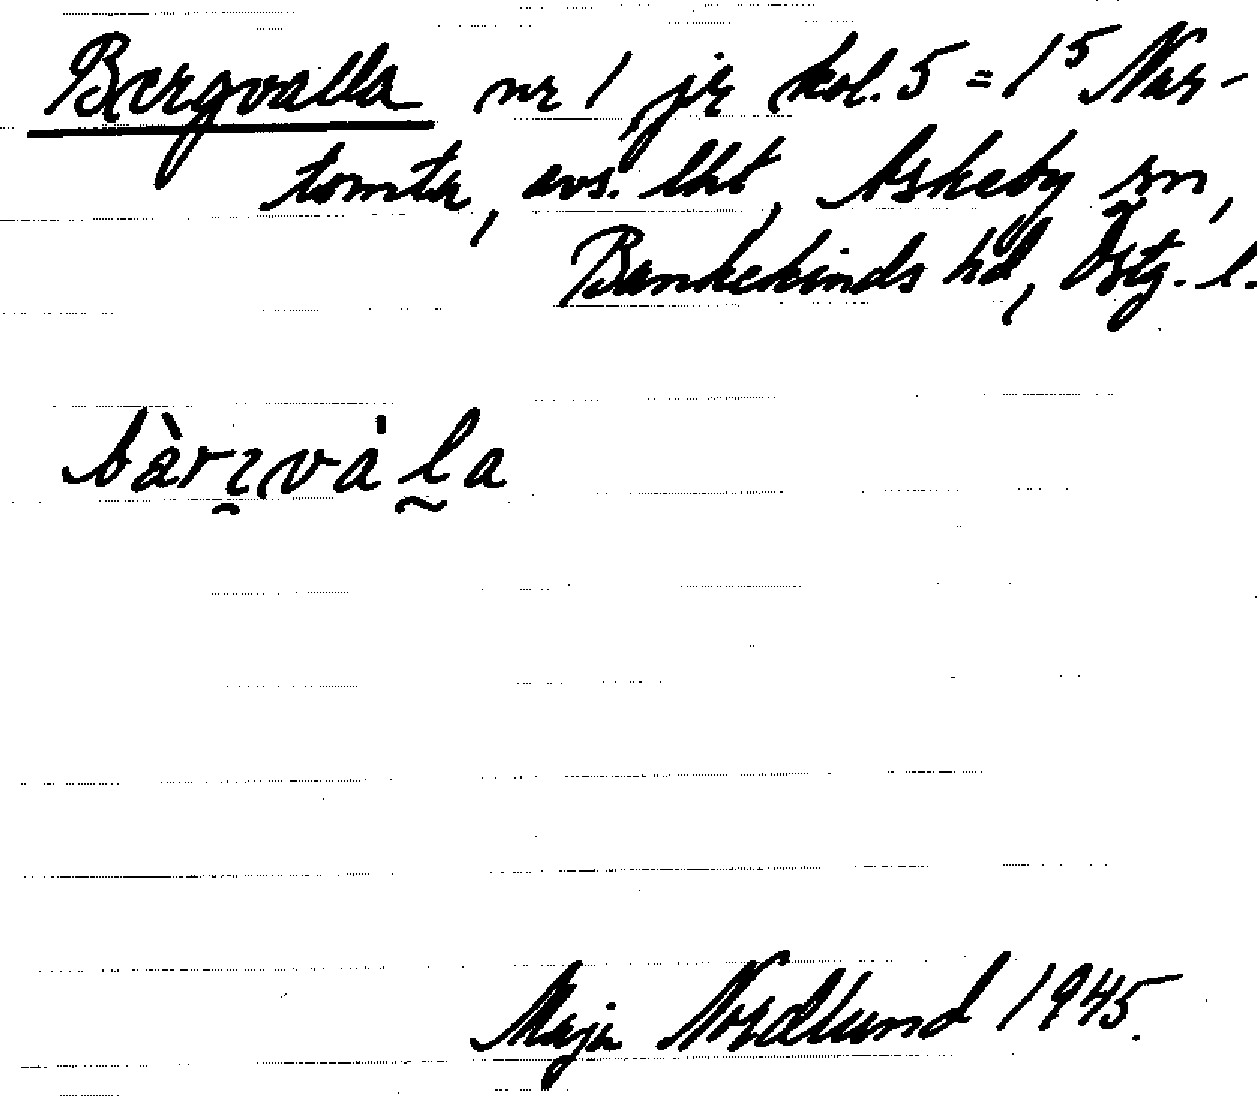 Bergvalla nr 1, jr kol. 5 = 1⁵ Nar-
tomta, avs. lht, Askeby sn,
Bankekinds hd, Östg. l.
bàrɿ̯vá'l̰a
Maja Nordlund 1945.